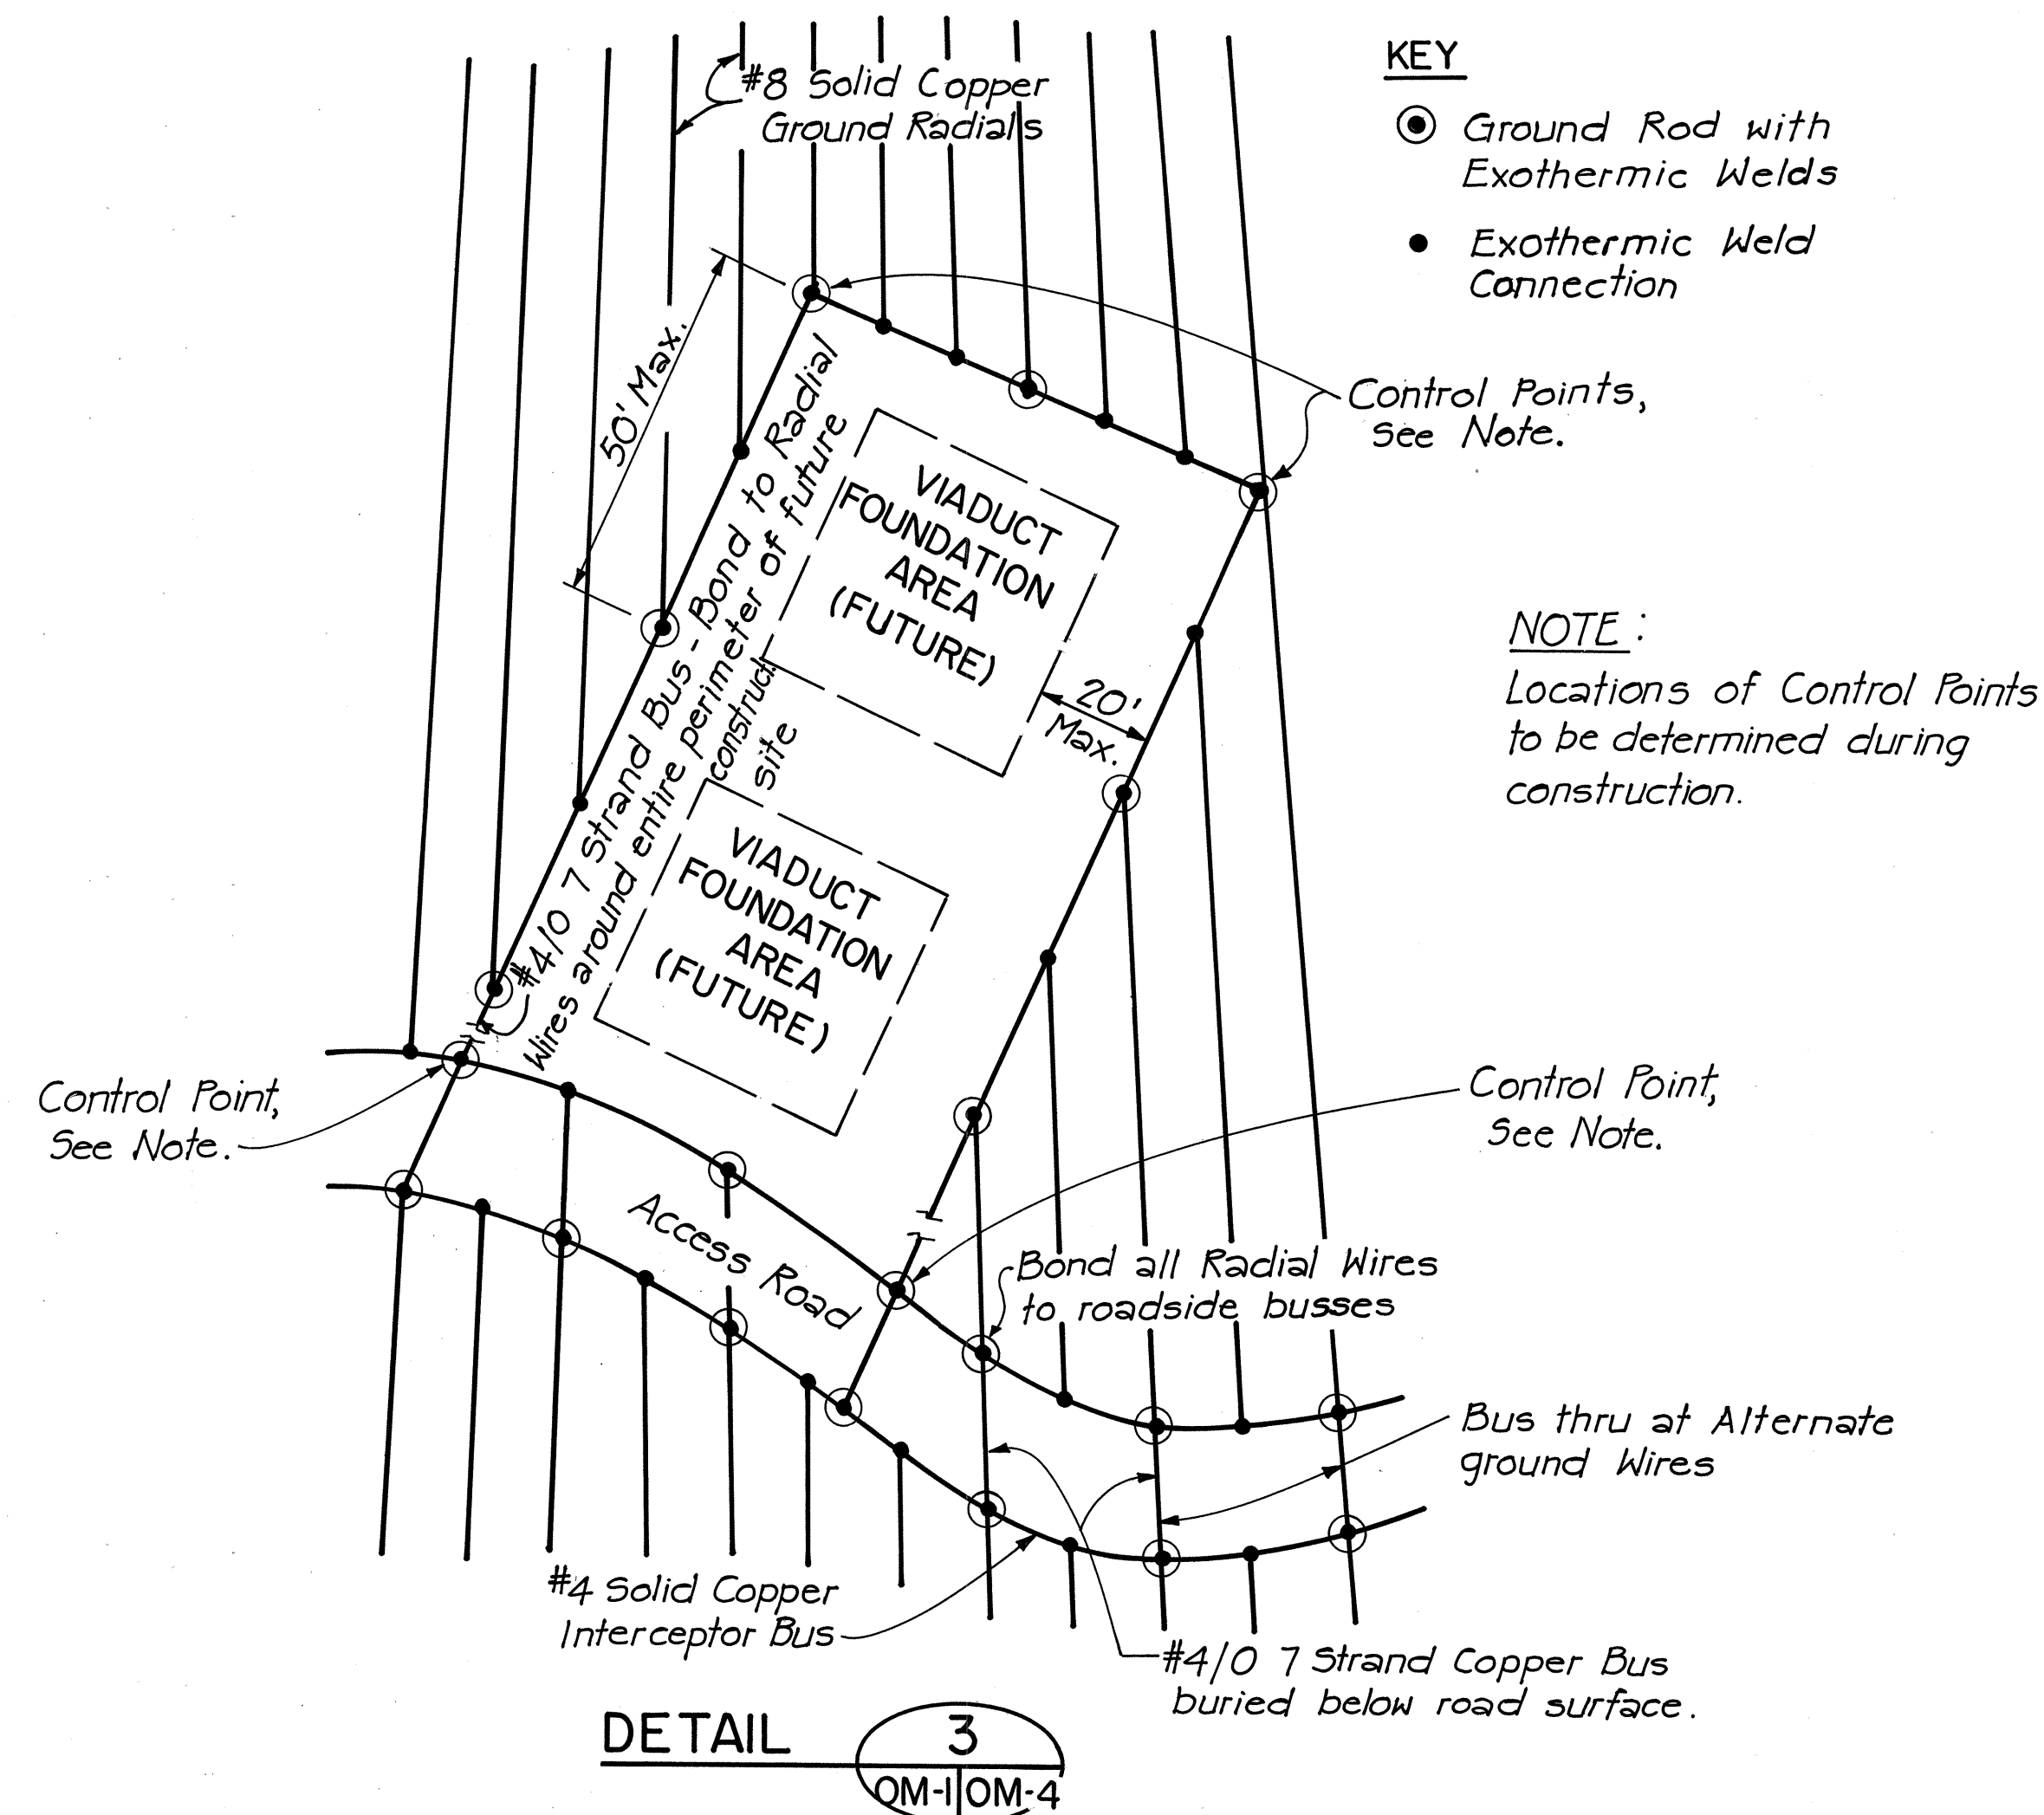 #8 Solid Copper
Ground Radials
KEY
Ground Rod with
Exothermic Welds
Exothermic Weld
Connection
50' Max.
Control Points,
See Note.
#4/0 7 Strand Bus - Bond to Radial
Wires around entire perimeter of future
construct.
site
VIADUCT
FOUNDATION
AREA
(FUTURE)
20'
Max.
NOTE:
Locations of Control Points
to be determined during
construction.
VIADUCT
FOUNDATION
AREA
(FUTURE)
Control Point,
See Note.
Control Point,
See Note.
Access Road
Bond all Radial Wires
to roadside busses
Bus thru at Alternate
ground Wires
#4 Solid Copper
Interceptor Bus
#4/0 7 Strand Copper Bus
buried below road surface.
DETAIL
3
OM-1 OM-4